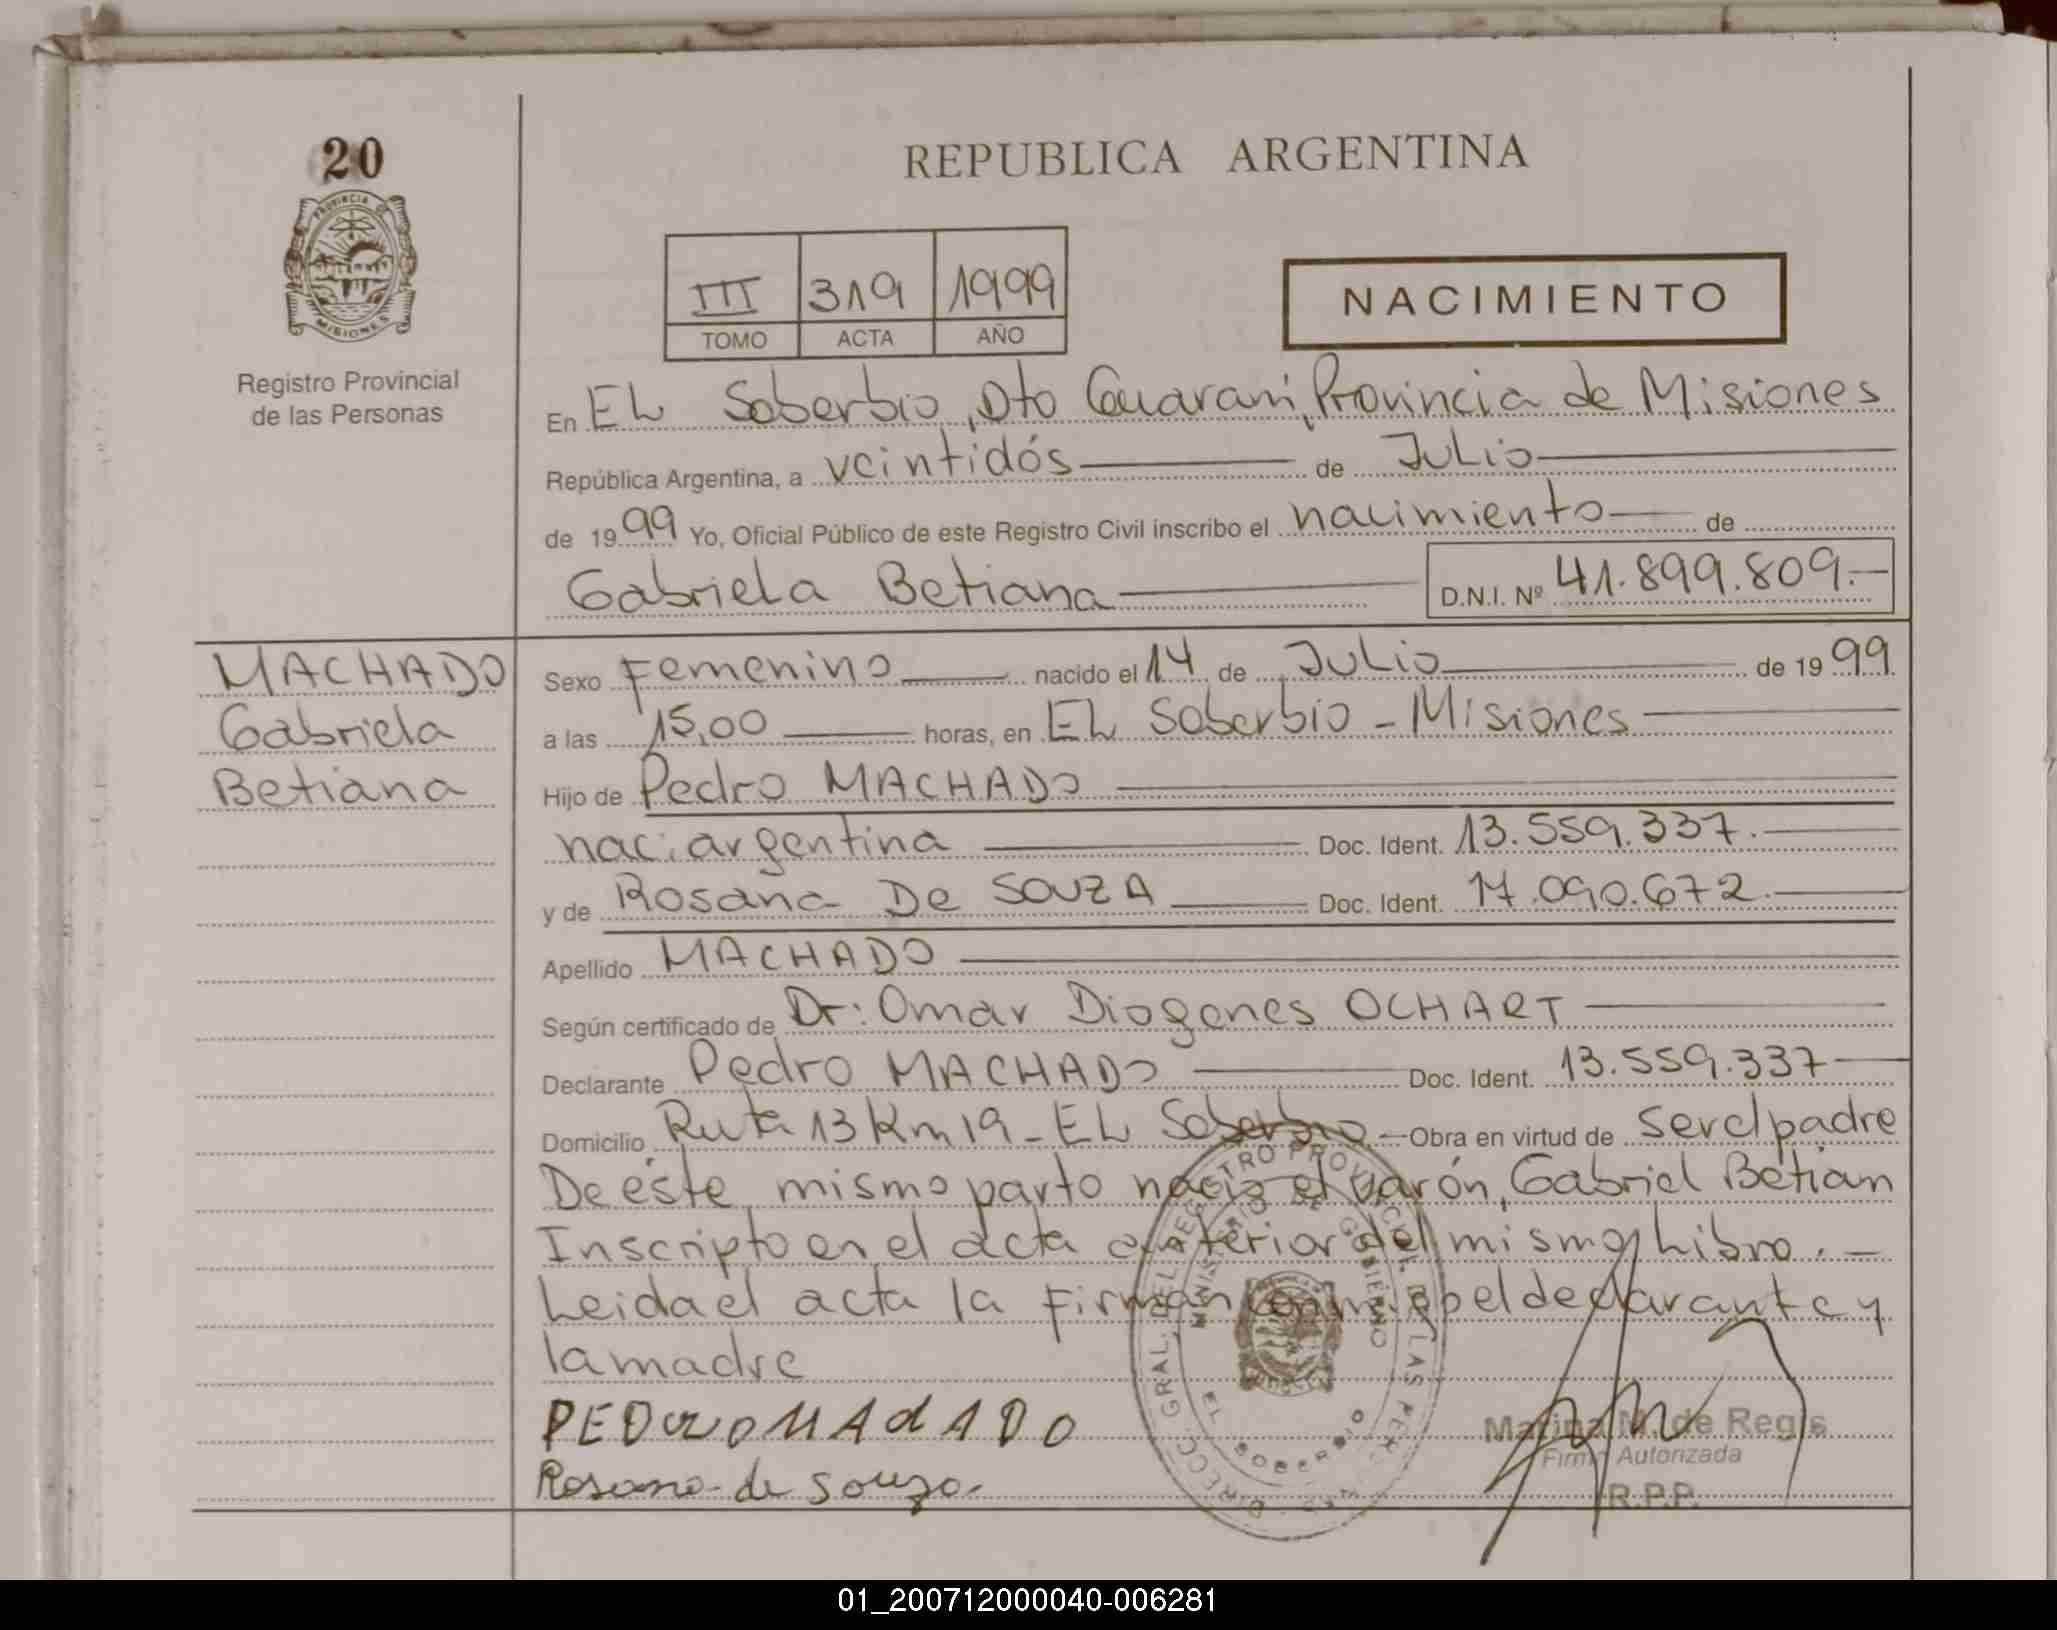 20
PROVINCIA DE
MISIONES
Registro Provincial
de las Personas
REPUBLICA ARGENTINA
III 319 1999
TOMO ACTA AÑO
NACIMIENTO
En EL Soberbio, Dto Guaraní, Provincia de Misiones
República Argentina, a veintidós de Julio
de 1999 Yo, Oficial Público de este Registro Civil inscribo el nacimiento de
Gabriela Betiana D.N.I. Nº 41.899.809.-
MACHADO
Gabriela
Betiana
Sexo Femenino nacido el 14 de Julio de 1999
a las 15,00 horas, en EL Soberbio - Misiones
Hijo de Pedro MACHADO
nac: argentina Doc. Ident. 13.559.337.
y de Rosana De SOUZA Doc. Ident. 17.090.672.
Apellido MACHADO
Según certificado de Dr: Omar Diogenes OCHART
Declarante Pedro MACHADO Doc. Ident. 13.559.337
Domicilio Ruta 13 Km 19 - EL Soberbio - Obra en virtud de ser el padre
De éste mismo parto nació el varón, Gabriel Betian
Inscripto en el acta anterior del mismo Libro. -
Leida el acta la Firman conmigo el declarante y
la madre
PEDRO MACHADO
Rosana de Souza.
DIRECC. GRAL. DEL REGISTRO PROVINC. DE LAS PERSONAS
MINISTERIO DE GOBIERNO
EL SOBERBIO
Marina M. de Regis
Firma Autorizada
R.P.P.
01_200712000040-006281